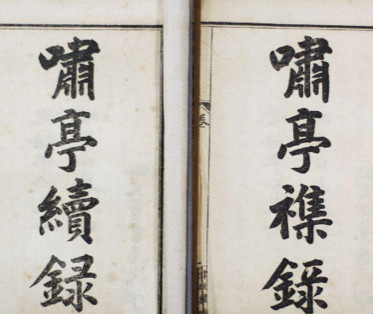 嘯亭襍錄
嘯亭續録